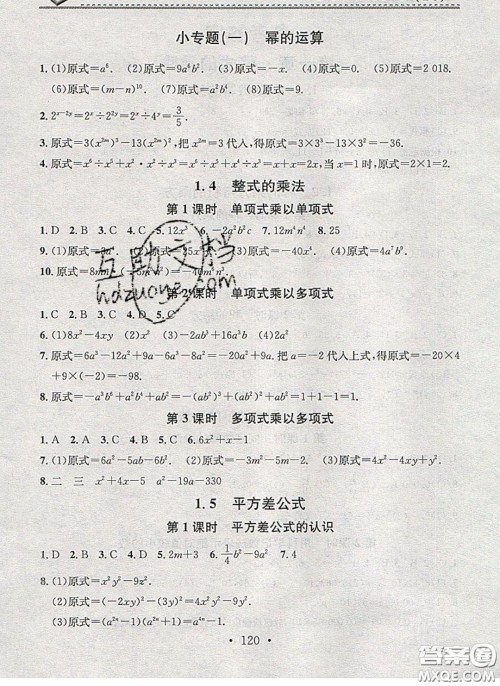 小专题(一) 幂的运算
1. (1)原式=a⁶. (2)原式=9a⁶b². (3)原式=-x. (4)原式=0. (5)原式=2 018.
(6)原式=(m-n)¹⁰. (7)原式=x⁶.
2. 2ˣ⁻²ʸ=2ˣ÷2²ʸ=2ˣ÷4ʸ=3/5.
3. 原式=3(x²ᵐ)³-13(x²ᵐ)²,把 x²ᵐ=3 代人,得原式=3×3³-13×3²=-36.
4. 原式=
当 x=1 时,原式=2×1=2.
1.4 整式的乘法
第 1 课时 单项式乘以单项式
1. D 2. B 3. C 4. D 5. 12x³ 6. -2a³b² 7. 12m⁴n⁴ 8. 25
9. (1)原式=
(2)原式=
(3)原式=
(4)原式=4a⁷b³.
10. 原式=
第 2 课时 单项式乘以多项式
1. C 2. B 3. D 4. D 5. C
6. (1)8x²-4xy (2)x² (3)-2ab³+16a³b (4)2ab²
7. 原式=6a³-12a²+9a-6a³-8a²=-20a²+9a. 把 a=-2 代人上式,得原式=-20×4
+9×(-2)=-98.
8. 原式=-a³b⁶+a²b⁴+ab²=-(ab²)³+(ab²)²+ab²=-1+1+1=1.
第 3 课时 多项式乘以多项式
1. A 2. A 3. C 4. A 5. C 6. 6x²+x-1
7. (1)原式=6a²-5ab-6b². (2)原式=-3m²-5m-1. (3)原式=4x²-4xy+y².
8. 二 三 x²+4x-5 a²-19a-330
1.5 平方差公式
第 1 课时 平方差公式的认识
1. D 2. B 3. C 4. B 5. 2m+3 6. 1/4b²-9a² 7. 4
8. (1)原式=x²y²-9z².
(2)原式=(-2xy)²-(3y)²=4x²y²-9y².
(3)原式=
120
互助文档
hdzuoye.com
答案圈
MXQE.COM